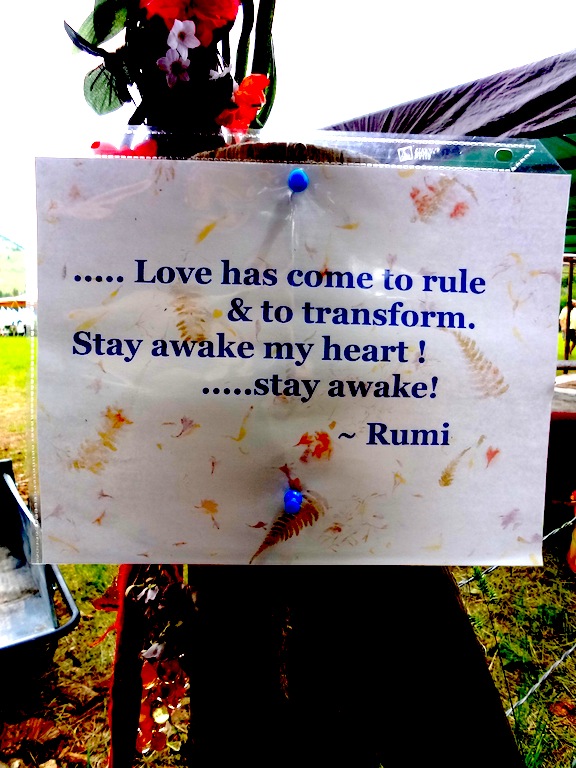 ..... Love has come to rule
& to transform.
Stay awake my heart !
.....stay awake!
~ Rumi